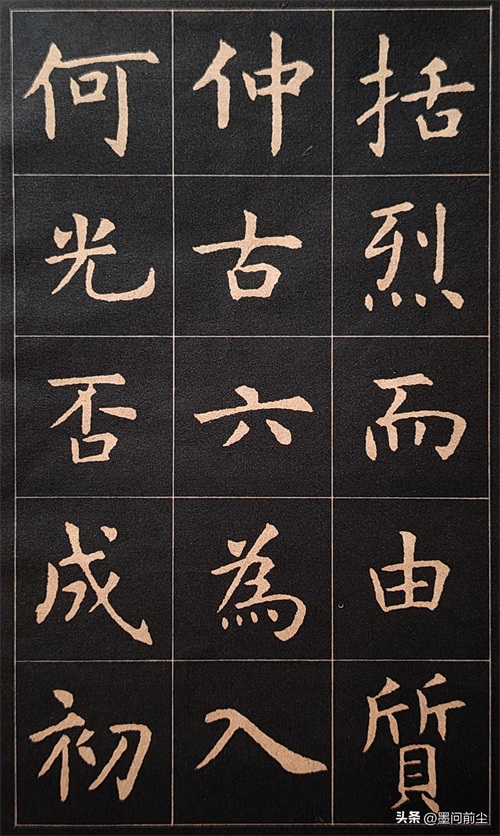 括烈而由質
仲古六為入
何光否成初
头条 @墨问前尘